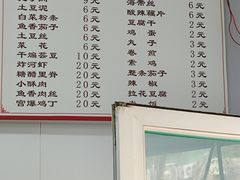 土豆泥 6元
白菜粉条 6元
鱼香茄子 6元
土豆丝 6元
菜花 6元
干煸芸豆 10元
炸河虾 20元
糖醋里脊 20元
小酥肉 20元
鱼香肉丝 20元
宫爆鸡丁 20元
海带丝 6元
酸辣藕片 6元
豆腐干 2元
鸡蛋 2元
丸子 3元
卷煎 3元
素鸡 2元
整条茄子 3元
辣椒 2元
拉花豆腐 2元
2元